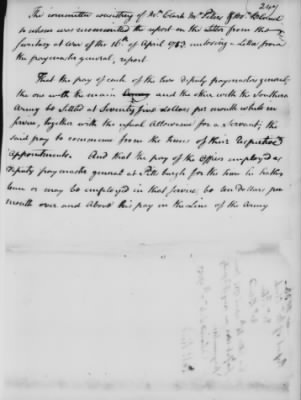 247
The committee consisting of Mr. Clark Mr. Peters & Mr.
to whom was recommitted the report on the Letter from the
Secretary at War of the 16th of April 1783 enclosing a Letter from
the paymaster general, report
That the pay of each of the two deputy paymasters general,
the one with the main Army and the other with the Southern
Army be settled at Seventy five dollars per month while in
service, together with the usual Allowance for a Servant; the
said pay to commence from the time of their respective
appointments. And that the pay of the Officer employed as
deputy paymaster general at Pittsburgh for the time he hath
been or may be employed in that Service be ten dollars per
month over and above his pay in the Line of the Army